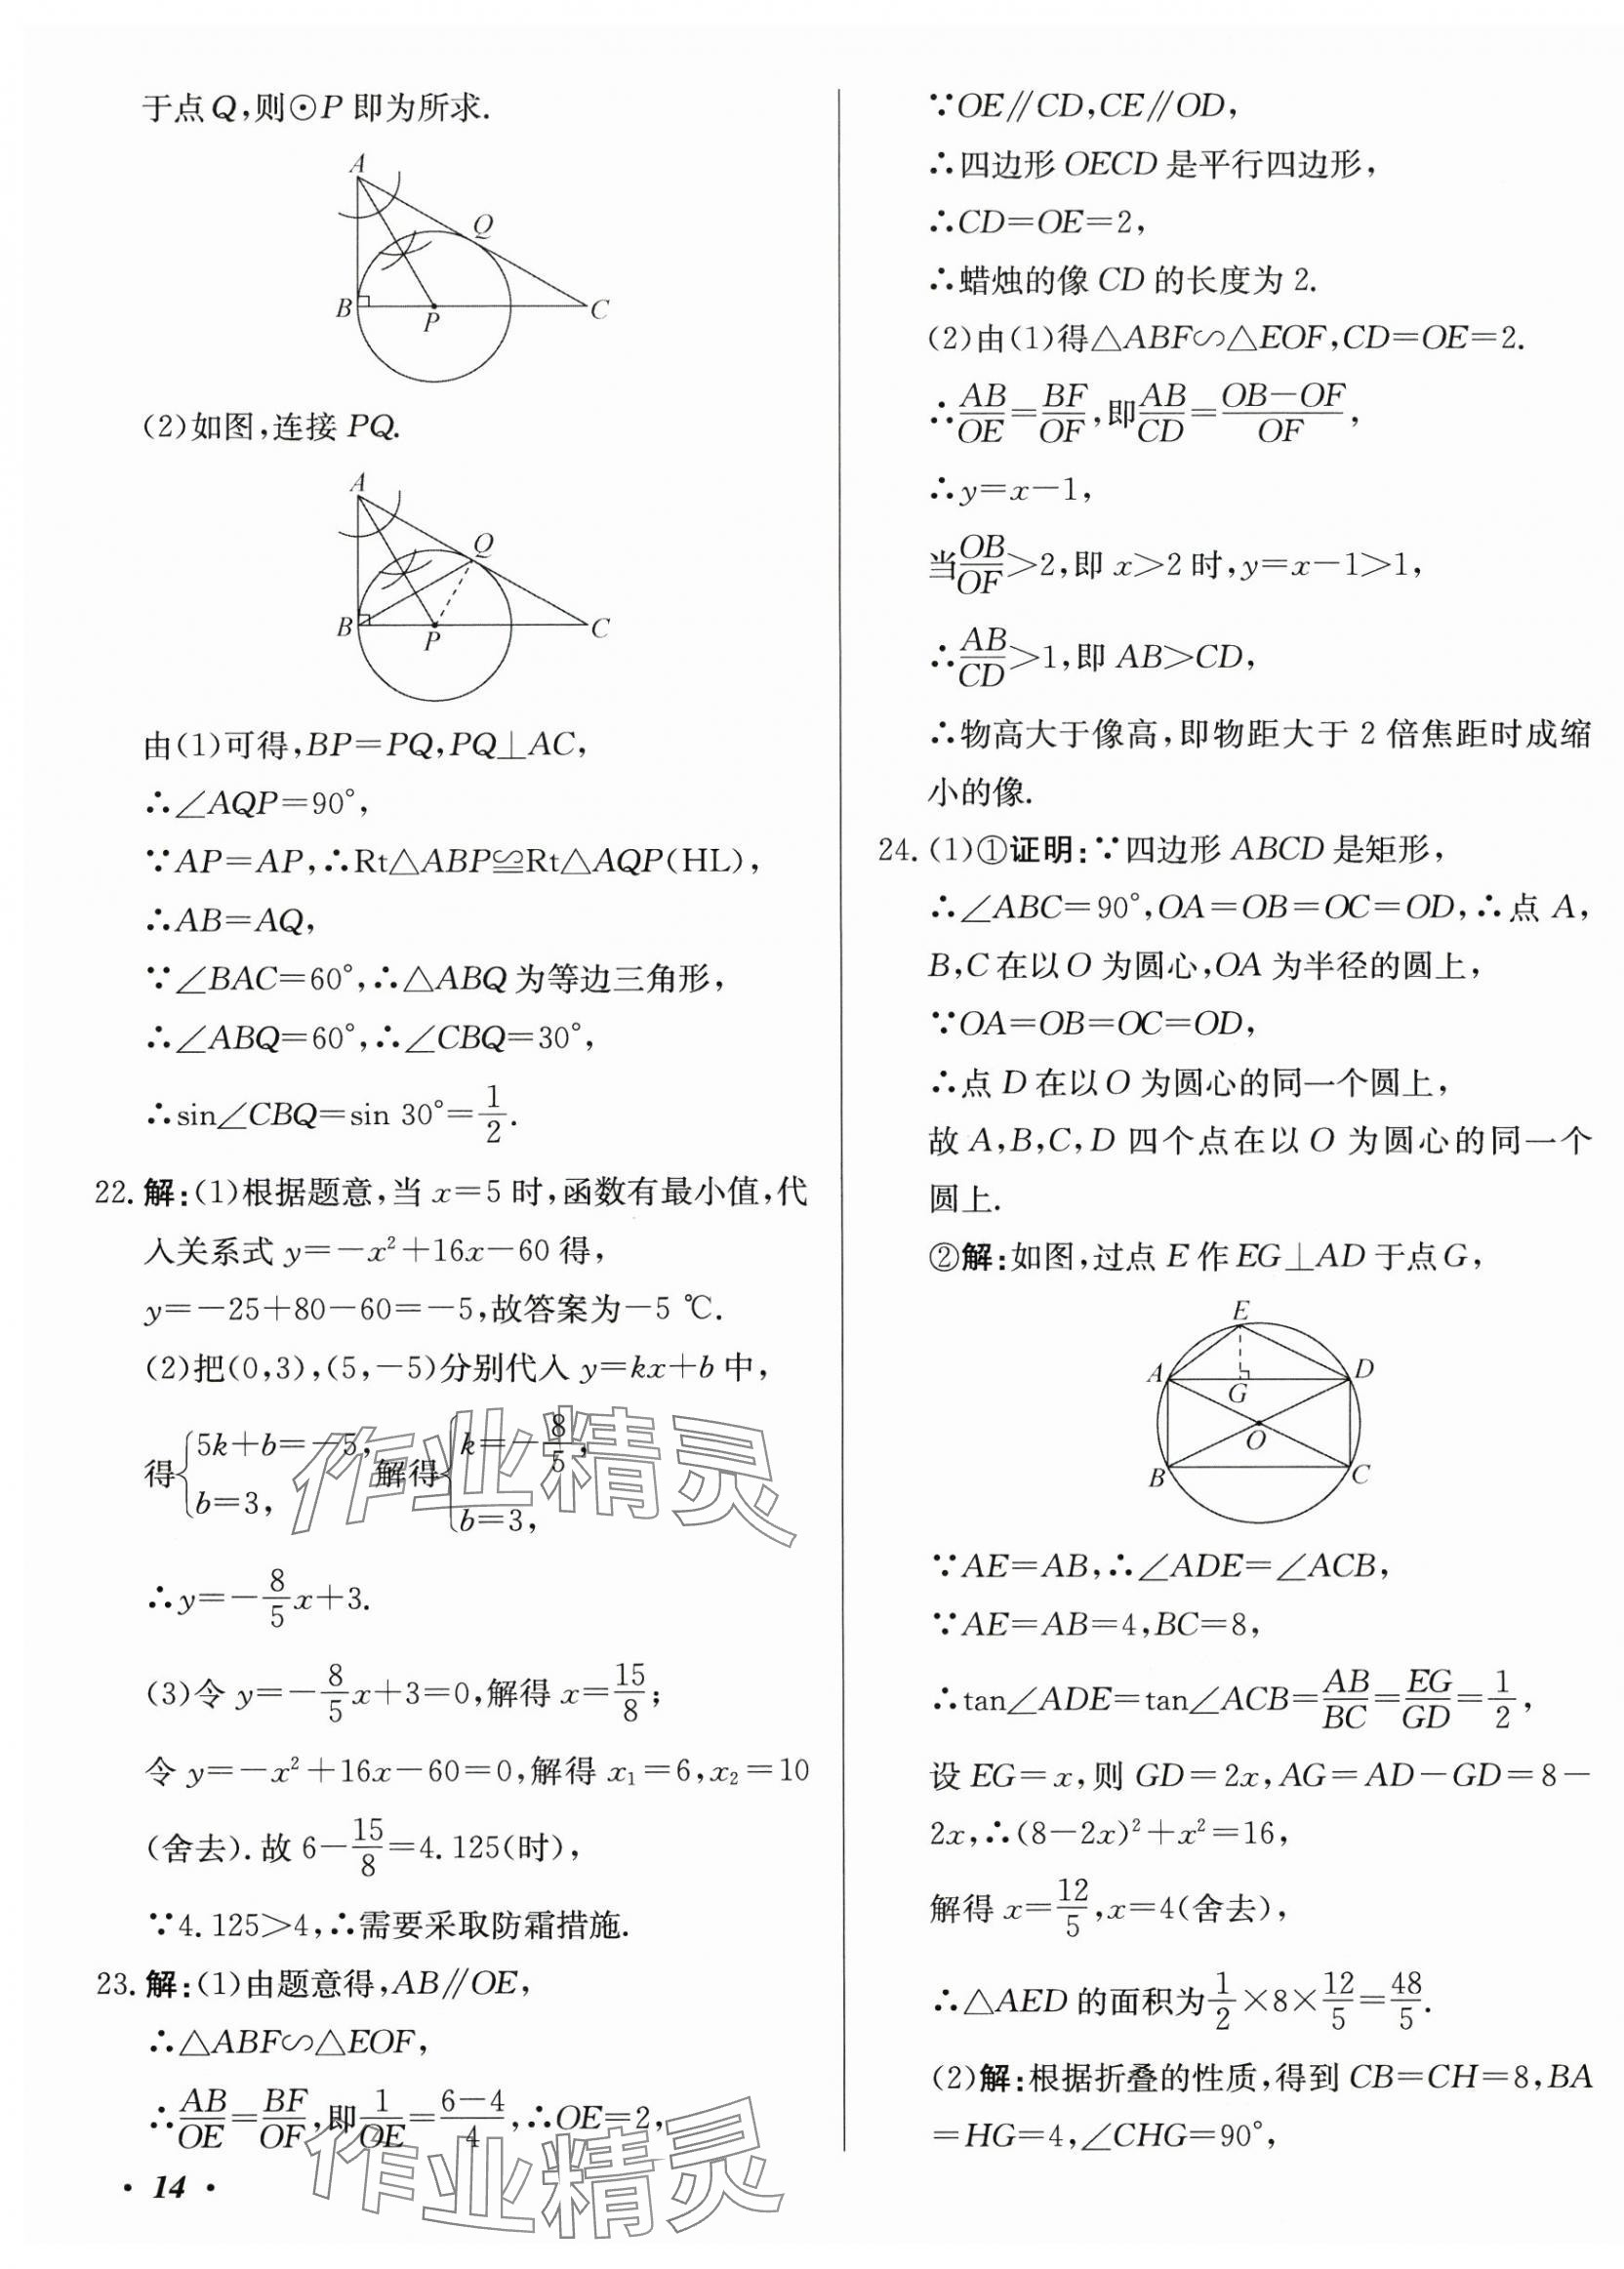 于点Q,则⊙P即为所求.
A
Q
B
P
C
(2)如图,连接PQ.
A
Q
B
P
C
由(1)可得,BP=PQ,PQ⊥AC,
∴∠AQP=90°,
∵AP=AP,∴Rt△ABP≌Rt△AQP(HL),
∴AB=AQ,
∵∠BAC=60°,∴△ABQ为等边三角形,
∴∠ABQ=60°,∴∠CBQ=30°,
∴sin∠CBQ=sin 30°=1/2.
22.解:(1)根据题意,当x=5时,函数有最小值,代
入关系式y=-x²+16x-60得,
y=-25+80-60=-5,故答案为-5 ℃.
(2)把(0,3),(5,-5)分别代入y=kx+b中,
得{5k+b=-5, b=3, 解得{k=-8/5, b=3,
∴y=-8/5x+3.
(3)令y=-8/5x+3=0,解得x=15/8;
令y=-x²+16x-60=0,解得x₁=6,x₂=10
(舍去).故6-15/8=4.125(时),
∵4.125>4,∴需要采取防霜措施.
23.解:(1)由题意得,AB∥OE,
∴△ABF∽△EOF,
∴AB/OE=BF/OF,即1/OE=(6-4)/4,∴OE=2,
· 14 ·
∵OE∥CD,CE∥OD,
∴四边形OECD是平行四边形,
∴CD=OE=2,
∴蜡烛的像CD的长度为2.
(2)由(1)得△ABF∽△EOF,CD=OE=2.
∴AB/OE=BF/OF,即AB/CD=(OB-OF)/OF,
∴y=x-1,
当OB/OF>2,即x>2时,y=x-1>1,
∴AB/CD>1,即AB>CD,
∴物高大于像高,即物距大于2倍焦距时成缩
小的像.
24.(1)①证明:∵四边形ABCD是矩形,
∴∠ABC=90°,OA=OB=OC=OD,∴点A,
B,C在以O为圆心,OA为半径的圆上,
∵OA=OB=OC=OD,
∴点D在以O为圆心的同一个圆上,
故A,B,C,D四个点在以O为圆心的同一个
圆上.
②解:如图,过点E作EG⊥AD于点G,
E
A
G
D
O
B
C
∵AE=AB,∴∠ADE=∠ACB,
∵AE=AB=4,BC=8,
∴tan∠ADE=tan∠ACB=AB/BC=EG/GD=1/2,
设EG=x,则GD=2x,AG=AD-GD=8-
2x,∴(8-2x)²+x²=16,
解得x=12/5,x=4(舍去),
∴△AED的面积为1/2×8×12/5=48/5.
(2)解:根据折叠的性质,得到CB=CH=8,BA
=HG=4,∠CHG=90°,
作业精灵
作业精灵